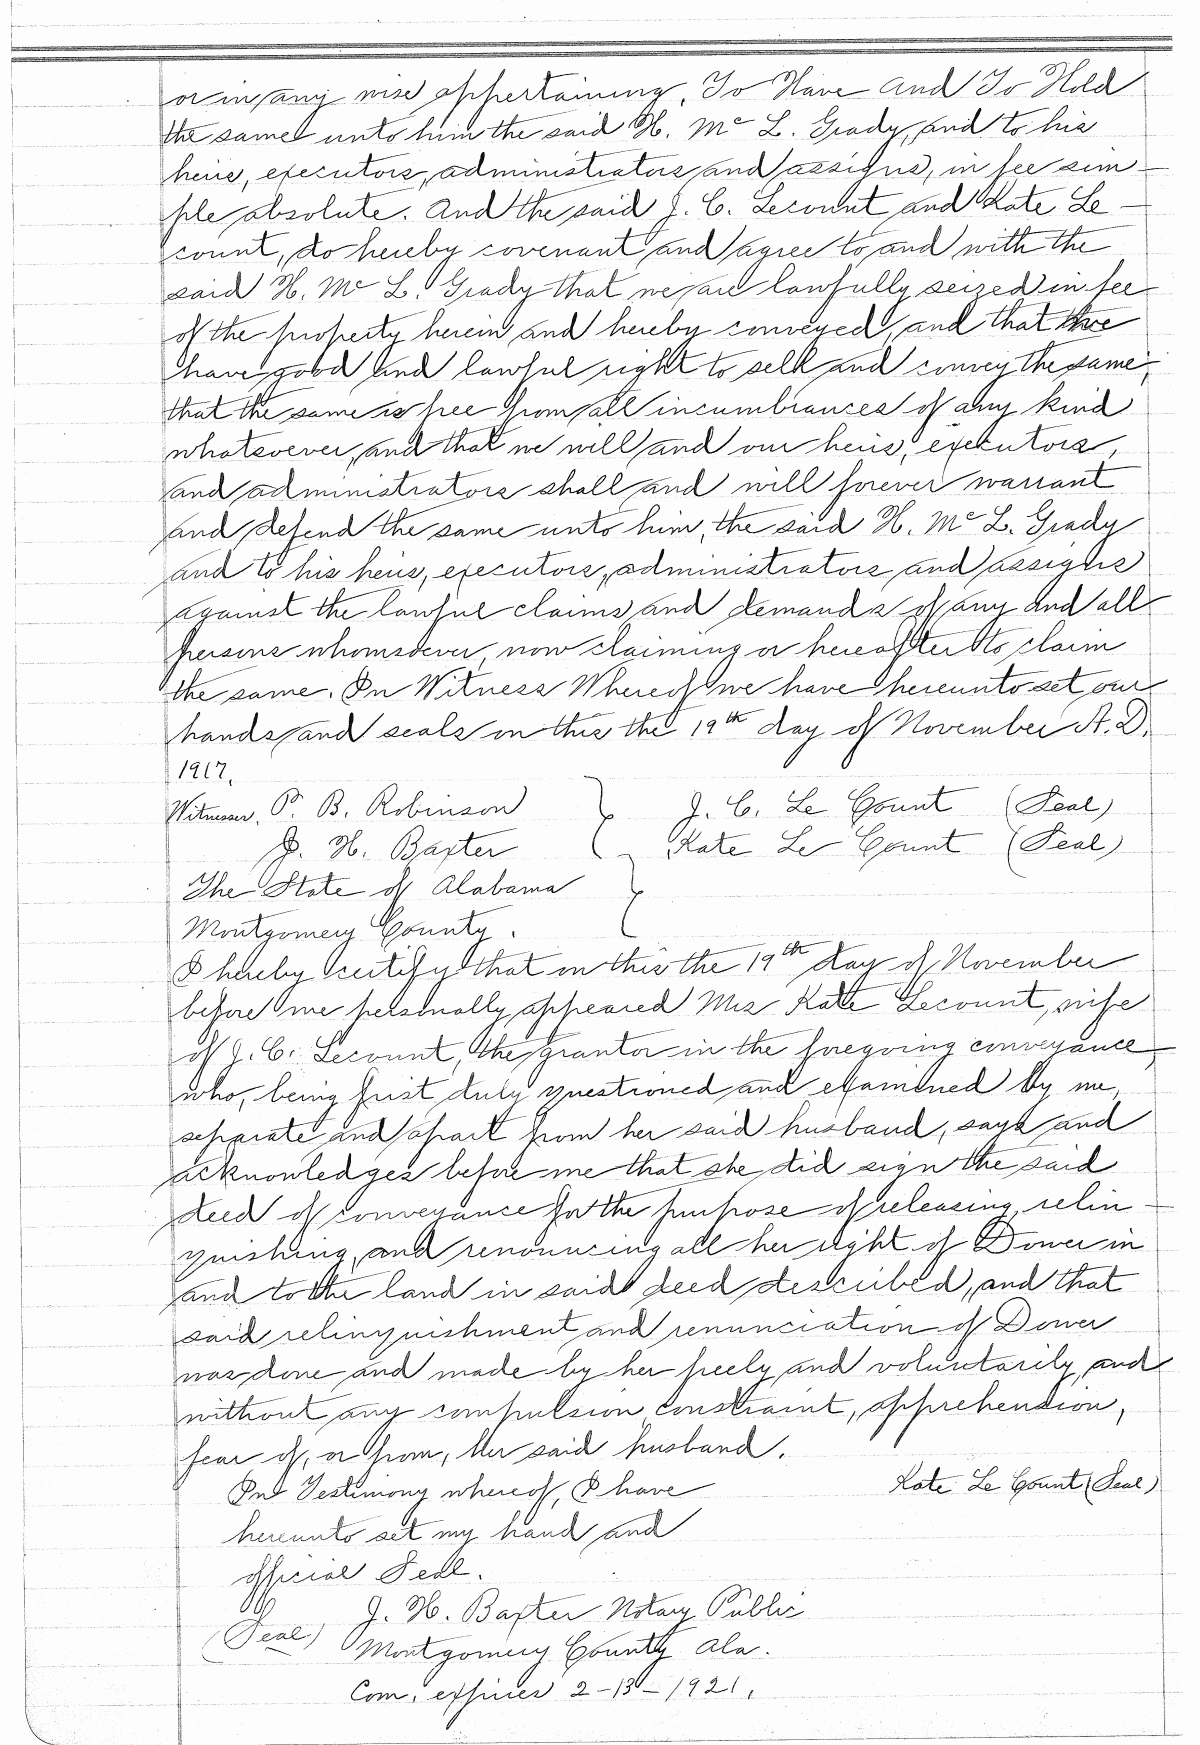 or in any wise appertaining, To Have and To Hold
the same unto him the said H. Mc L. Grady, and to his
heirs, executors, administrators and assigns, in fee sim-
ple absolute. And the said J. C. Lecount and Kate Le-
count, do hereby covenant and agree to and with the
said H. Mc L. Grady that we are lawfully seized in fee
of the property herein and hereby conveyed, and that we
have good and lawful right to sell and convey the same,
that the same is free from all incumbrances of any kind
whatsoever, and that we will and our heirs, executors,
and administrators shall and will forever warrant
and defend the same unto him, the said H. Mc L. Grady
and to his heirs, executors, administrators and assigns
against the lawful claims and demands of any and all
persons whomsoever, now claiming or hereafter to claim
the same. In Witness Whereof we have hereunto set our
hands and seals on this the 19th day of November A.D.
1917.
Witnesses, P. B. Robinson } J. C. Le Count (Seal)
J. H. Baxter } Kate Le Count (Seal)
The State of Alabama }
Montgomery County.
I hereby certify that on this the 19th day of November
before me personally appeared Mrs Kate Lecount, wife
of J. C. Lecount, the grantor in the foregoing conveyance,
who, being first duly questioned and examined by me,
separate and apart from her said husband, says and
acknowledges before me that she did sign the said
deed of conveyance for the purpose of releasing, relin-
quishing, and renouncing all her right of Dower in
and to the land in said deed described, and that
said relinquishment and renunciation of Dower
was done and made by her freely and voluntarily, and
without any compulsion, constraint, apprehension,
fear of, or from, her said husband.
In Testimony whereof, I have Kate Le Count (Seal)
hereunto set my hand and
official Seal.
J. H. Baxter Notary Public
(Seal) Montgomery County Ala.
Com. expires 2-13-1921.